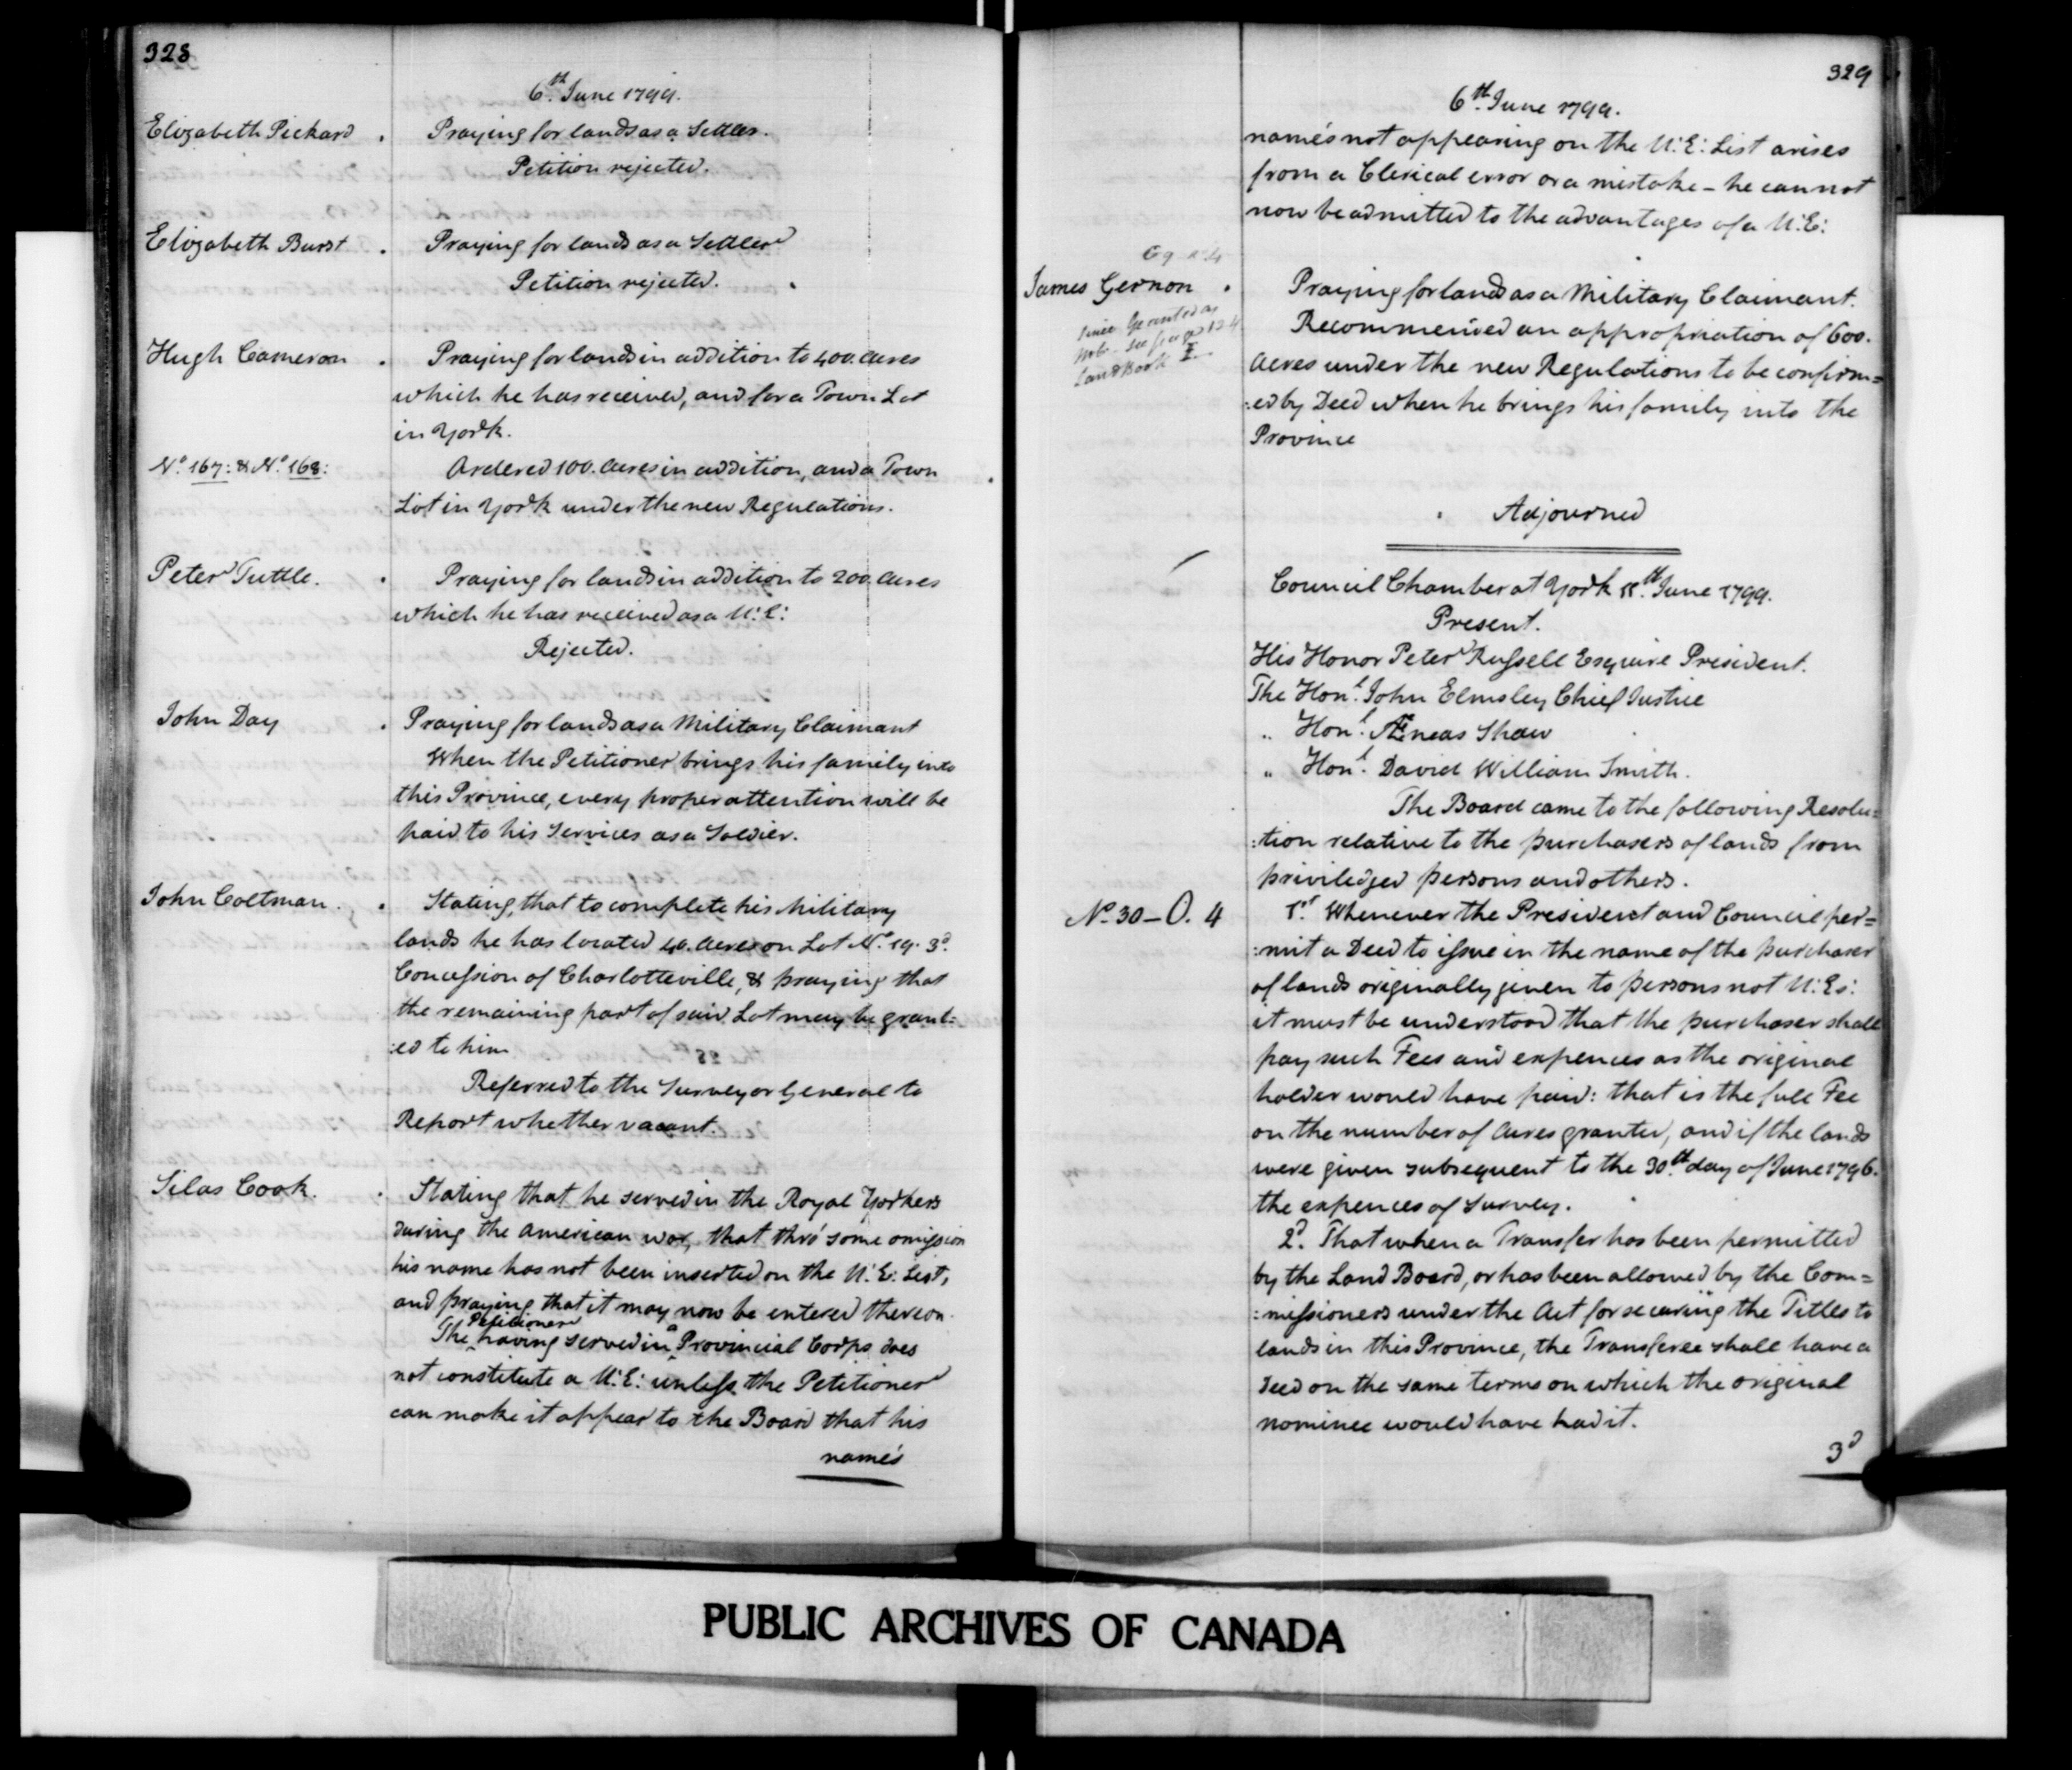 328
6.th June 1799.
Elizabeth Pickard . Praying for lands as a Settler.
Petition rejected.
Elizabeth Burst . Praying for lands as a Settler
Petition rejected.
Hugh Cameron . Praying for lands in addition to 400. Acres
which he has received, and for a Town Lot
in York.
No. 167: & No. 168: Ordered 100. Acres in addition, and a Town
Lot in York under the new Regulations.
Peter Tuttle. . Praying for lands in addition to 200. Acres
which he has received as a U:E:
Rejected.
John Day . Praying for lands as a Military Claimant
When the Petitioner brings his family into
this Province, every proper attention will be
paid to his Services as a Soldier.
John Coltman. . Stating, that to complete his Military
lands he has located 40. Acres on Lot No. 19. 3d.
Concession of Charlotteville, & praying that
the remaining part of said Lot may be grant:
:ed to him
Referred to the Surveyor General to
Report whether vacant.
Silas Cook. . Stating that he served in the Royal Yorkers
during the American war, that thro' some omission
his name has not been inserted on the U:E: List,
and praying that it may now be entered thereon.
The Petitioner having served in a Provincial Corps does
not constitute a U:E: unless the Petitioner
can make it appear to the Board that his
name's
329
6.th June 1799.
name's not appearing on the U:E: List arises
from a Clerical error or a mistake - he cannot
now be admitted to the advantages of a U:E:
James Gernon . Praying for lands as a Military Claimant.
since Granted as
see page 124
Land Book
Recommended an appropriation of 600.
Acres under the new Regulations to be confirm=
:ed by Deed when he brings his family into the
Province
Adjourned
Council Chamber at York 11.th June 1799.
Present.
His Honor Peter Russell Esquire President.
The Honl. John Elmsley Chief Justice
" Honl. Æneas Shaw
" Honl. David William Smith.
The Board came to the following Resolu=
:tion relative to the purchasers of lands from
priviledged persons and others.
No. 30 - O. 4 1st. Whenever the President and Council per=
:mit a Deed to issue in the name of the purchaser
of lands originally given to persons not U:Es:
it must be understood that the purchaser shall
pay such Fees and expences as the original
holder would have paid: that is the full Fee
on the number of Acres granted, and if the lands
were given subsequent to the 30.th day of June 1796.
the expences of Survey.
2d. That when a Transfer has been permitted
by the Land Board, or has been allowed by the Com=
:missioners under the Act for securing the Titles to
lands in this Province, the Transferee shall have a
Deed on the same terms on which the original
nominee would have had it.
3d
PUBLIC ARCHIVES OF CANADA